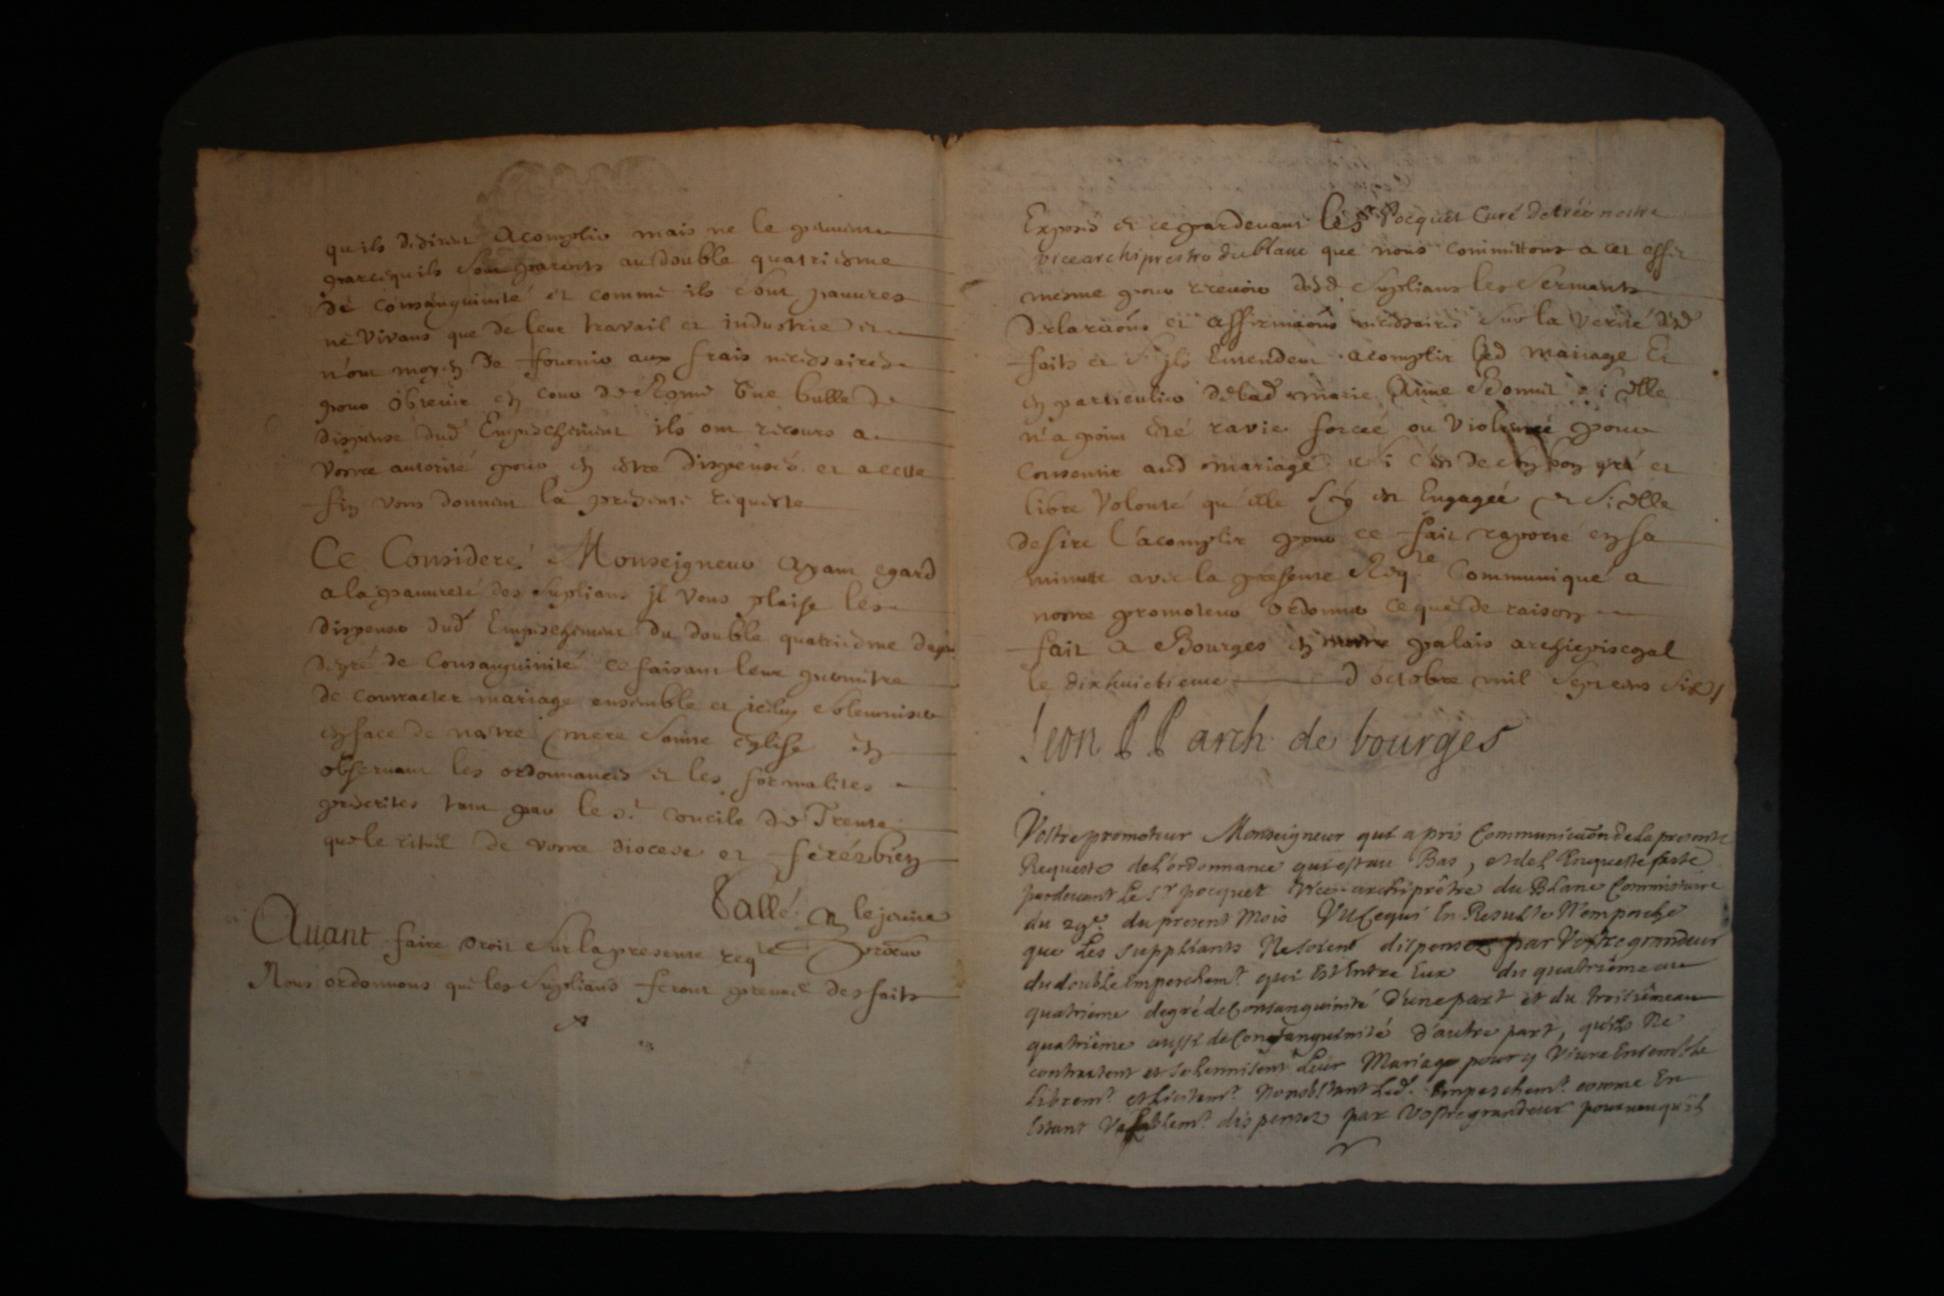 qu'ils desirent acomplir mais ne le peuvent
parcequils sont parents au double quatriesme
de consanguinité et comme ils sont pauvres
ne vivans que de leur travail et industrie et
n'ont moyen de fournir aux frais necessaires
pour obtenir en cour de Rome une bulle de
dispense dud Empeschement ils ont recours a
vostre autorité pour en estre dispensés et a cette
fin vous donnent la presente requeste
Ce Consideré Monseigneur ayant egard
a la pauvreté des suplians il vous plaise les
dispenser dud Empeschement du double quatriesme
degré de Consanguinité ce faisant leur permettre
de contracter mariage ensemble et iceluy solemniser
en face de notre mere sainte eglise en
observant les ordonnances et les formalites
prescrites tant par le st concile de Trente
que le rituel de vostre diocese et ferés bien
Vallé le jeune
Avant faire droit sur la presente reqte
Nous ordonnons que les suplians feront preuve des faits
Exposés et ce pardevant le sr Pocquet Curé de nostre
vicearchiprestre du blanc que nous committons a cet effet
mesme pour recevoir desd suplians les serments
declaraõns et affirmaõns necessaires sur la verité desd
faits et s'ils entendent acomplir led mariage Et
en particulier de lad marie Anne Bonnet si elle
n'a point esté ravie forcée ou violentée pour
consentir aud mariage si c'est de son bon gré et
libre volonté qu'elle s'y est Engagée et si elle
desire l'acomplir pour ce fait raporté en sa
minutte avec la presente Reqte Communiqué a
nostre promoteur ordonner ce que de raison
fait a Bourges en nostre palais archiepiscopal
le dixhuictieme d'octobre mil sept cens six
Leon P P arch de bourges
Vostre promoteur Monseigneur qui a pris Communicaõn de la presente
Requeste de l'ordonnance qui est au Bas, et de l'Enqueste faite
pardevant Le Sr pocquet Vice-archiprêtre du Blanc Commissaire
du 29e. du présent Mois Vu Ce qui En Resulte N'empesche
que Les Suppliants Ne soient dispensez par Vostre grandeur
du double Empeschemt. qui Est Entre Eux du quatrième au
quatrième degré de Consanguinité d'une part et du troisième au
quatrième aussi de Consanguinité d'autre part, qu'ils Ne
contractent et solennisent Leur Mariage pour y Vivre Ensemble
Libremt. et Licitemt. Nonobstant Led. Empeschemt. comme En
Estant Valablemt. dispensez par Vostre grandeur pourveu qu'il